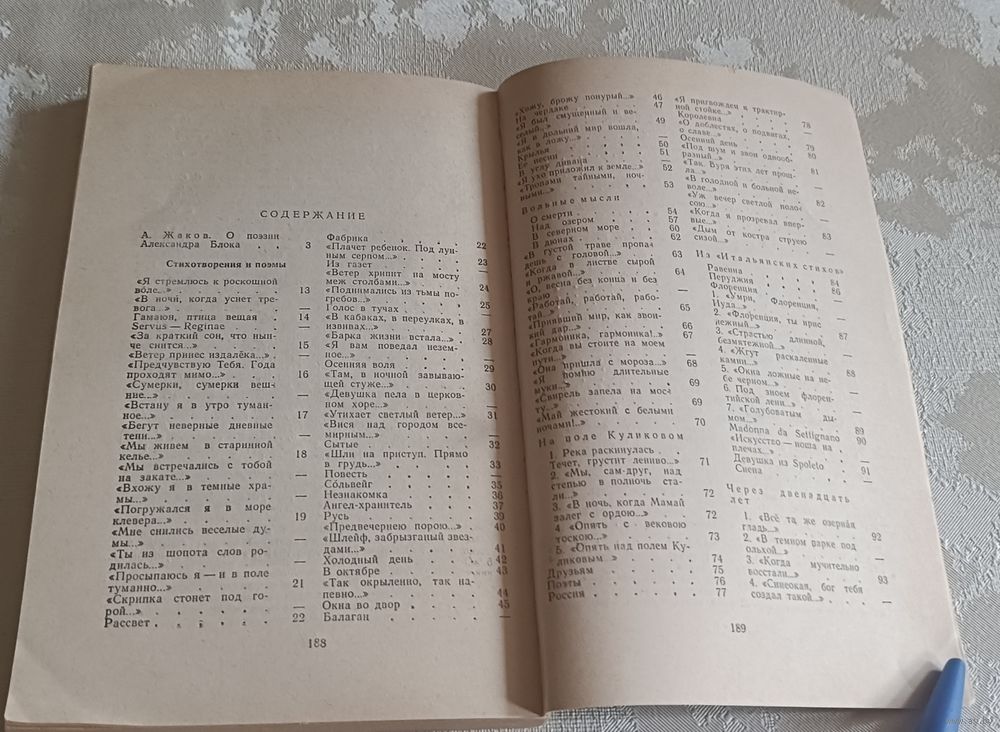 СОДЕРЖАНИЕ
А. Жаков. О поэзии
Александра Блока . . 3
Стихотворения и поэмы
«Я стремлюсь к роскошной
воле...» . . . . 13
«В ночи, когда уснет тре-
вога...» . . . . —
Гамаюн, птица вещая . 14
Servus — Reginae . . —
«За краткий сон, что ны-
че снится...» . . . 15
«Ветер принес издалёка...» . —
«Предчувствую Тебя. Года
проходят мимо...» . . 16
«Сумерки, сумерки веш-
ние...» . . . . —
«Встану я в утро туман-
ное...» . . . . 17
«Бегут неверные дневные
тени...» . . . . —
«Мы живем в старинной
келье...» . . . . 18
«Мы встречались с тобой
на закате...» . . . —
«Вхожу я в темные хра-
мы...» . . . . —
«Погружался я в море
клевера...» . . . 19
«Мне снились веселые ду-
мы...» . . . . —
«Ты из шопота слов ро-
дилась...» . . . . —
«Просыпаюсь я — и в поле
туманно...» . . . 21
«Скрипка стонет под го-
рой...» . . . . —
Рассвет . . . . 22
Фабрика . . . . 22
«Плачет ребенок. Под лун-
ным серпом...» . . . 23
Из газет . . . . —
«Ветер хрипит на мосту
меж столбами...» . . 24
«Поднимались из тьмы по-
гребов...» . . . . —
Голос в тучах . . . 25
«В кабаках, в переулках, в
извивах...» . . . 27
«Барка жизни встала...» . 28
«Я вам поведал незем-
ное...» . . . . —
Осенняя воля . . . 29
«Там, в ночной завываю-
щей стуже...» . . . 30
«Девушка пела в церков-
ном хоре...» . . . —
«Утихает светлый ветер...» . 31
«Вися над городом все-
мирным...» . . . —
Сытые . . . . 32
«Шли на приступ. Прямо
в грудь...» . . . 33
Повесть . . . . —
Сольвейг . . . . 35
Незнакомка . . . 36
Ангел-хранитель . . 37
Русь . . . . 39
«Предвечернею порою...» . 40
«Шлейф, забрызганый звез-
дами...» . . . . 41
Холодный день . . . 42
В октябре . . . . 43
«Так окрыленно, так на-
певно...» . . . . 44
Окна во двор . . . 45
Балаган . . . . —
188
«Хожу, брожу понурый...» 46
На чердаке . . . 47
«Я был смущенный и ве-
селый...» . . . . 49
«Я в дольний мир вошла,
как в ложу...» . . . —
Крылья . . . . 50
Ее песни . . . . 51
В углу дивана . . . —
«Я ухо приложил к земле...» 52
«Тропами тайными, ноч-
ными...» . . . . 53
Вольные мысли
О смерти . . . . 54
Над озером . . . 57
В северном море . . 60
В дюнах . . . . 62
«В густой траве пропа-
дешь с головой...» . . 63
«Когда в листве сырой
и ржавой...» . . . 64
«О, весна без конца и без
краю . . . . —
«Работай, работай, рабо-
тай...» . . . . 65
«Приявший мир, как звон-
кий дар...» . . . 66
«Гармоника, гармоника!..» 67
«Когда вы стоите на моем
пути...» . . . . —
«Она пришла с мороза...» 68
«Я помню длительные
муки...» . . . . 69
«Свирель запела на мос-
ту...» . . . . 69
«Май жестокий с белыми
ночами!..» . . . 70
На поле Куликовом
1. Река раскинулась .
Течет, грустит лениво...» . 71
2. «Мы, сам-друг, над
степью в полночь ста-
ли...» . . . . 72
3. «В ночь, когда Мамай
залег с ордою...» . . 72
4 «Опять с вековою
тоскою...» . . . 73
5. «Опять над полем Ку-
ликовым » . . . 74
Друзьям . . . . 75
Поэты . . . . 76
Россия . . . . 77
«Я пригвожден к трактир-
ной стойке...» . . . 78
Королевна . . . . —
«О доблестях, о подвигах,
о славе...» . . . 79
Осенний день . . . 80
«Под шум и звон однооб-
разный...» . . . 81
«Так. Буря этих лет прош-
ла...» . . . . —
«В голодной и больной не-
воле...» . . . . 82
«Уж вечер светлой поло-
сою...» . . . . —
«Когда я прозревал впер-
вые...» . . . . —
«Дым от костра струею
сизой...» . . . . —
Из «Итальянских стихов»
Равенна . . . . 84
Перуджия . . . . 86
Флоренция
1. «Умри, Флоренция,
Иуда...» . . . .
2. «Флоренция, ты ирис
нежный...» . . . 87
3. «Страстью длинной,
безмятежной...» . . —
4. «Жгут раскаленные
камни...» . . . 88
5. «Окна ложные на не-
бе черном...» . . . —
6. Под зноем флорен-
тийской лени...» . . —
7. «Голубоватым ды-
мом...» . . . . 89
Madonna da Settignano 90
«Искусство — ноша на
плечах...» . . . —
Девушка из Spoleto . 91
Сиена . . . . —
Через двенадцать
лет
1. «Всё та же озерная
гладь...» . . . 92
2. «В темном парке под
ольхой...» . . . —
3. «Когда мучительно
восстали...» . . . 93
4. «Синеокая, бог тебя
создал такой...» . . —
189